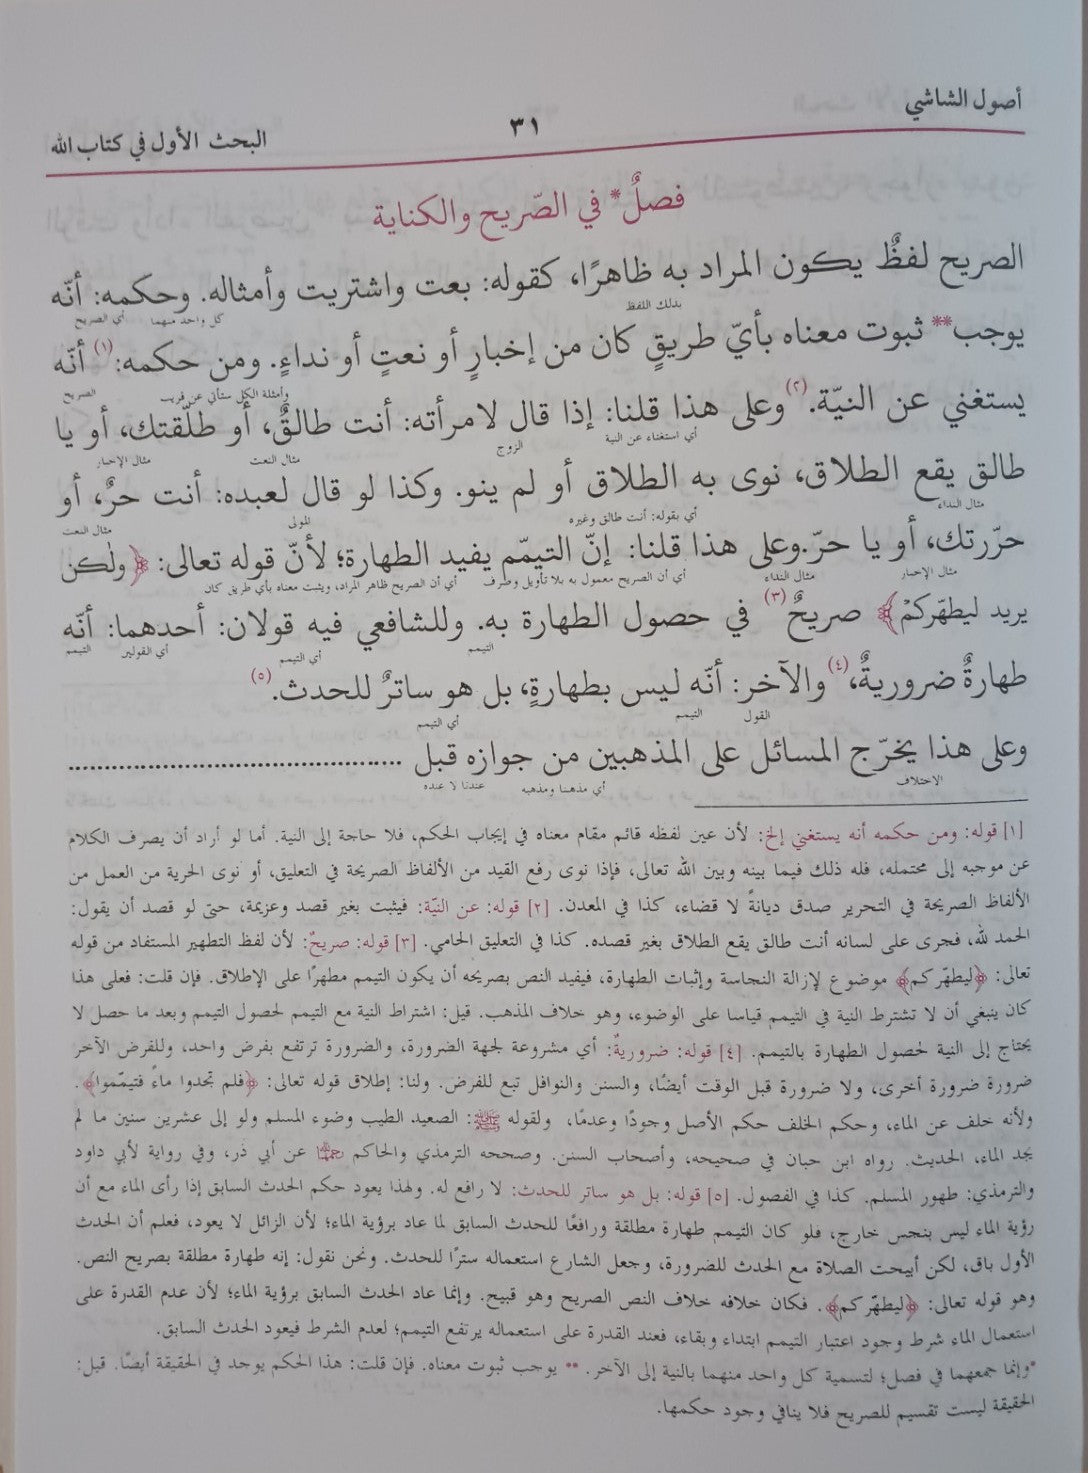 أصول الشاشي
٣١
البحث الأول في كتاب الله
فصلٌ* في الصّريح والكناية
الصريح لفظٌ يكون المراد به ظاهرًا، كقوله: بعت واشتريت وأمثاله. وحكمه: أنّه
بذلك اللفظ كل واحد منهما أي الصريح
يوجب** ثبوت معناه بأيّ طريقٍ كان من إخبارٍ أو نعتٍ أو نداءٍ. ومن حكمه:(١) أنّه
وأمثلة الكل ستأتي عن قريب الصريح
يستغني عن النيّة.(٢) وعلى هذا قلنا: إذا قال لامرأته: أنت طالقٌ، أو طلّقتك، أو يا
أي استغناء عن النية الزوج مثال النعت مثال الإخبار
طالق يقع الطلاق، نوى به الطلاق أو لم ينو. وكذا لو قال لعبده: أنت حرٌ، أو
مثال النداء أي بقوله: أنت طالق وغيره المولى مثال النعت
حرّرتك، أو يا حرّ.وعلى هذا قلنا: إنّ التيمّم يفيد الطهارة؛ لأنّ قوله تعالى: ﴿ولكن
مثال الإخبار مثال النداء أي أن الصريح معمول به بلا تأويل وصرف أي أن الصريح ظاهر المراد، ويثبت معناه بأي طريق كان
يريد ليطهّركمْ﴾ صريحٌ(٣) في حصول الطهارة به. وللشافعي فيه قولان: أحدهما: أنّه
التيمم أي التيمم أي القولين التيمم
طهارةٌ ضروريةٌ،(٤) والآخر: أنّه ليس بطهارةٍ، بل هو ساترٌ للحدث.(٥)
القول التيمم أي التيمم
وعلى هذا يخرّج المسائل على المذهبين من جوازه قبل ..............................................
الاختلاف أي مذهبنا ومذهبه عندنا لا عنده
[١] قوله: ومن حكمه أنه يستغني إلخ: لأن عين لفظه قائم مقام معناه في إيجاب الحكم، فلا حاجة إلى النية. أما لو أراد أن يصرف الكلام
عن موجبه إلى محتمله، فله ذلك فيما بينه وبين الله تعالى، فإذا نوى رفع القيد من الألفاظ الصريحة في التعليق، أو نوى الحرية من العمل من
الألفاظ الصريحة في التحرير صدق ديانةً لا قضاء، كذا في المعدن. [٢] قوله: عن النيّة: فيثبت بغير قصد وعزيمة، حتى لو قصد أن يقول:
الحمد لله، فجرى على لسانه أنت طالق يقع الطلاق بغير قصده. كذا في التعليق الحامي. [٣] قوله: صريحٌ: لأن لفظ التطهير المستفاد من قوله
تعالى: ﴿ليطهّركم﴾ موضوع لإزالة النجاسة وإثبات الطهارة، فيفيد النص بصريحه أن يكون التيمم مطهرًا على الإطلاق. فإن قلت: فعلى هذا
كان ينبغي أن لا تشترط النية في التيمم قياسا على الوضوء، وهو خلاف المذهب. قيل: اشتراط النية مع التيمم لحصول التيمم وبعد ما حصل لا
يحتاج إلى النية لحصول الطهارة بالتيمم. [٤] قوله: ضروريةٌ: أي مشروعة لجهة الضرورة، والضرورة ترتفع بفرض واحد، وللفرض الآخر
ضرورة ضرورة أخرى، ولا ضرورة قبل الوقت أيضًا، والسنن والنوافل تبع للفرض. ولنا: إطلاق قوله تعالى: ﴿فلم تجدوا ماءً فتيمّموا﴾.
ولأنه خلف عن الماء، وحكم الخلف حكم الأصل وجودًا وعدمًا، ولقوله ﷺ: الصعيد الطيب وضوء المسلم ولو إلى عشرين سنين ما لم
يجد الماء، الحديث. رواه ابن حبان في صحيحه، وأصحاب السنن. وصححه الترمذي والحاكم عن أبي ذر، وفي رواية لأبي داود
والترمذي: طهور المسلم. كذا في الفصول. [٥] قوله: بل هو ساتر للحدث: لا رافع له. ولهذا يعود حكم الحدث السابق إذا رأى الماء مع أن
رؤية الماء ليس بنجس خارج، فلو كان التيمم طهارة مطلقة ورافعًا للحدث السابق لما عاد برؤية الماء؛ لأن الزائل لا يعود، فعلم أن الحدث
الأول باق، لكن أبيحت الصلاة مع الحدث للضرورة، وجعل الشارع استعماله سترًا للحدث. ونحن نقول: إنه طهارة مطلقة بصريح النص.
وهو قوله تعالى: ﴿ليطهّركم﴾. فكان خلافه خلاف النص الصريح وهو قبيح. وإنما عاد الحدث السابق برؤية الماء؛ لأن عدم القدرة على
استعمال الماء شرط وجود اعتبار التيمم ابتداء وبقاء، فعند القدرة على استعماله يرتفع التيمم؛ لعدم الشرط فيعود الحدث السابق.
*وإنما جمعهما في فصل؛ لتسمية كل واحد منهما بالنية إلى الآخر. ** يوجب ثبوت معناه. فإن قلت: هذا الحكم يوجد في الحقيقة أيضًا. قيل:
الحقيقة ليست تقسيم للصريح فلا ينافي وجود حكمها.